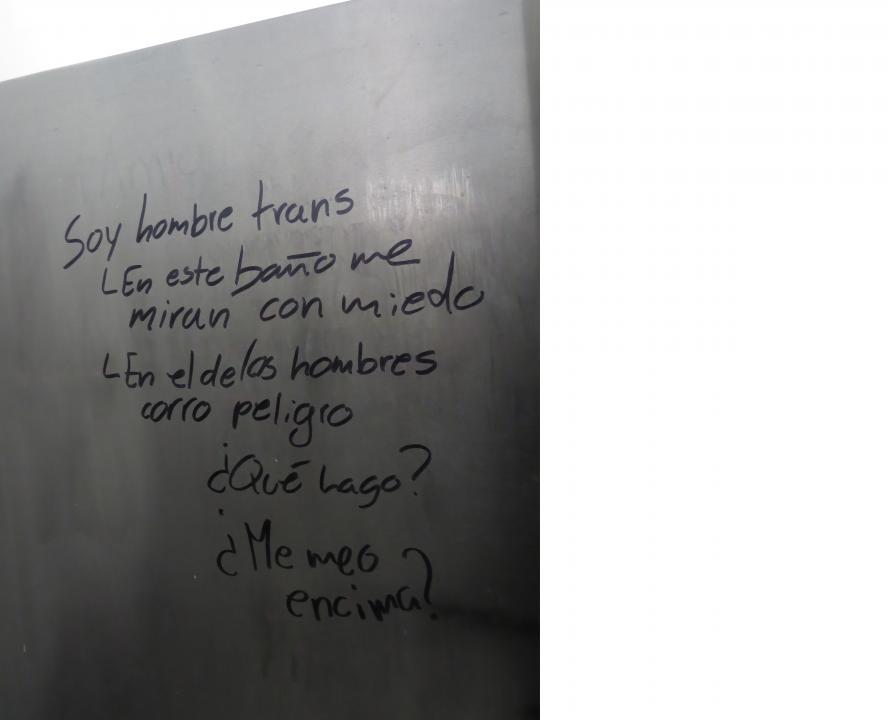 Soy hombre trans
↳En este baño me
miran con miedo
↳En el de los hombres
corro peligro
¿Qué hago?
¿Me meo
encima?